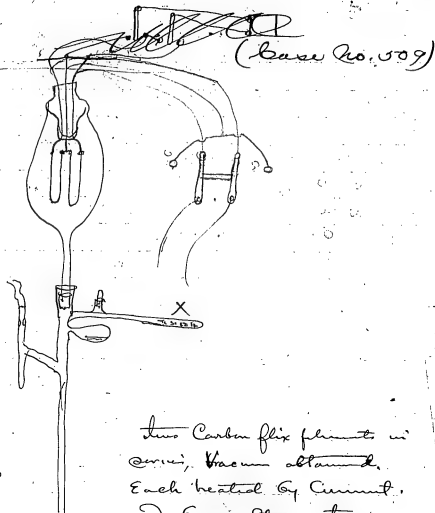 (Case No. 509)
X
two Carbon flix filaments in
series, Vacuum obtained.
Each heated by Current.